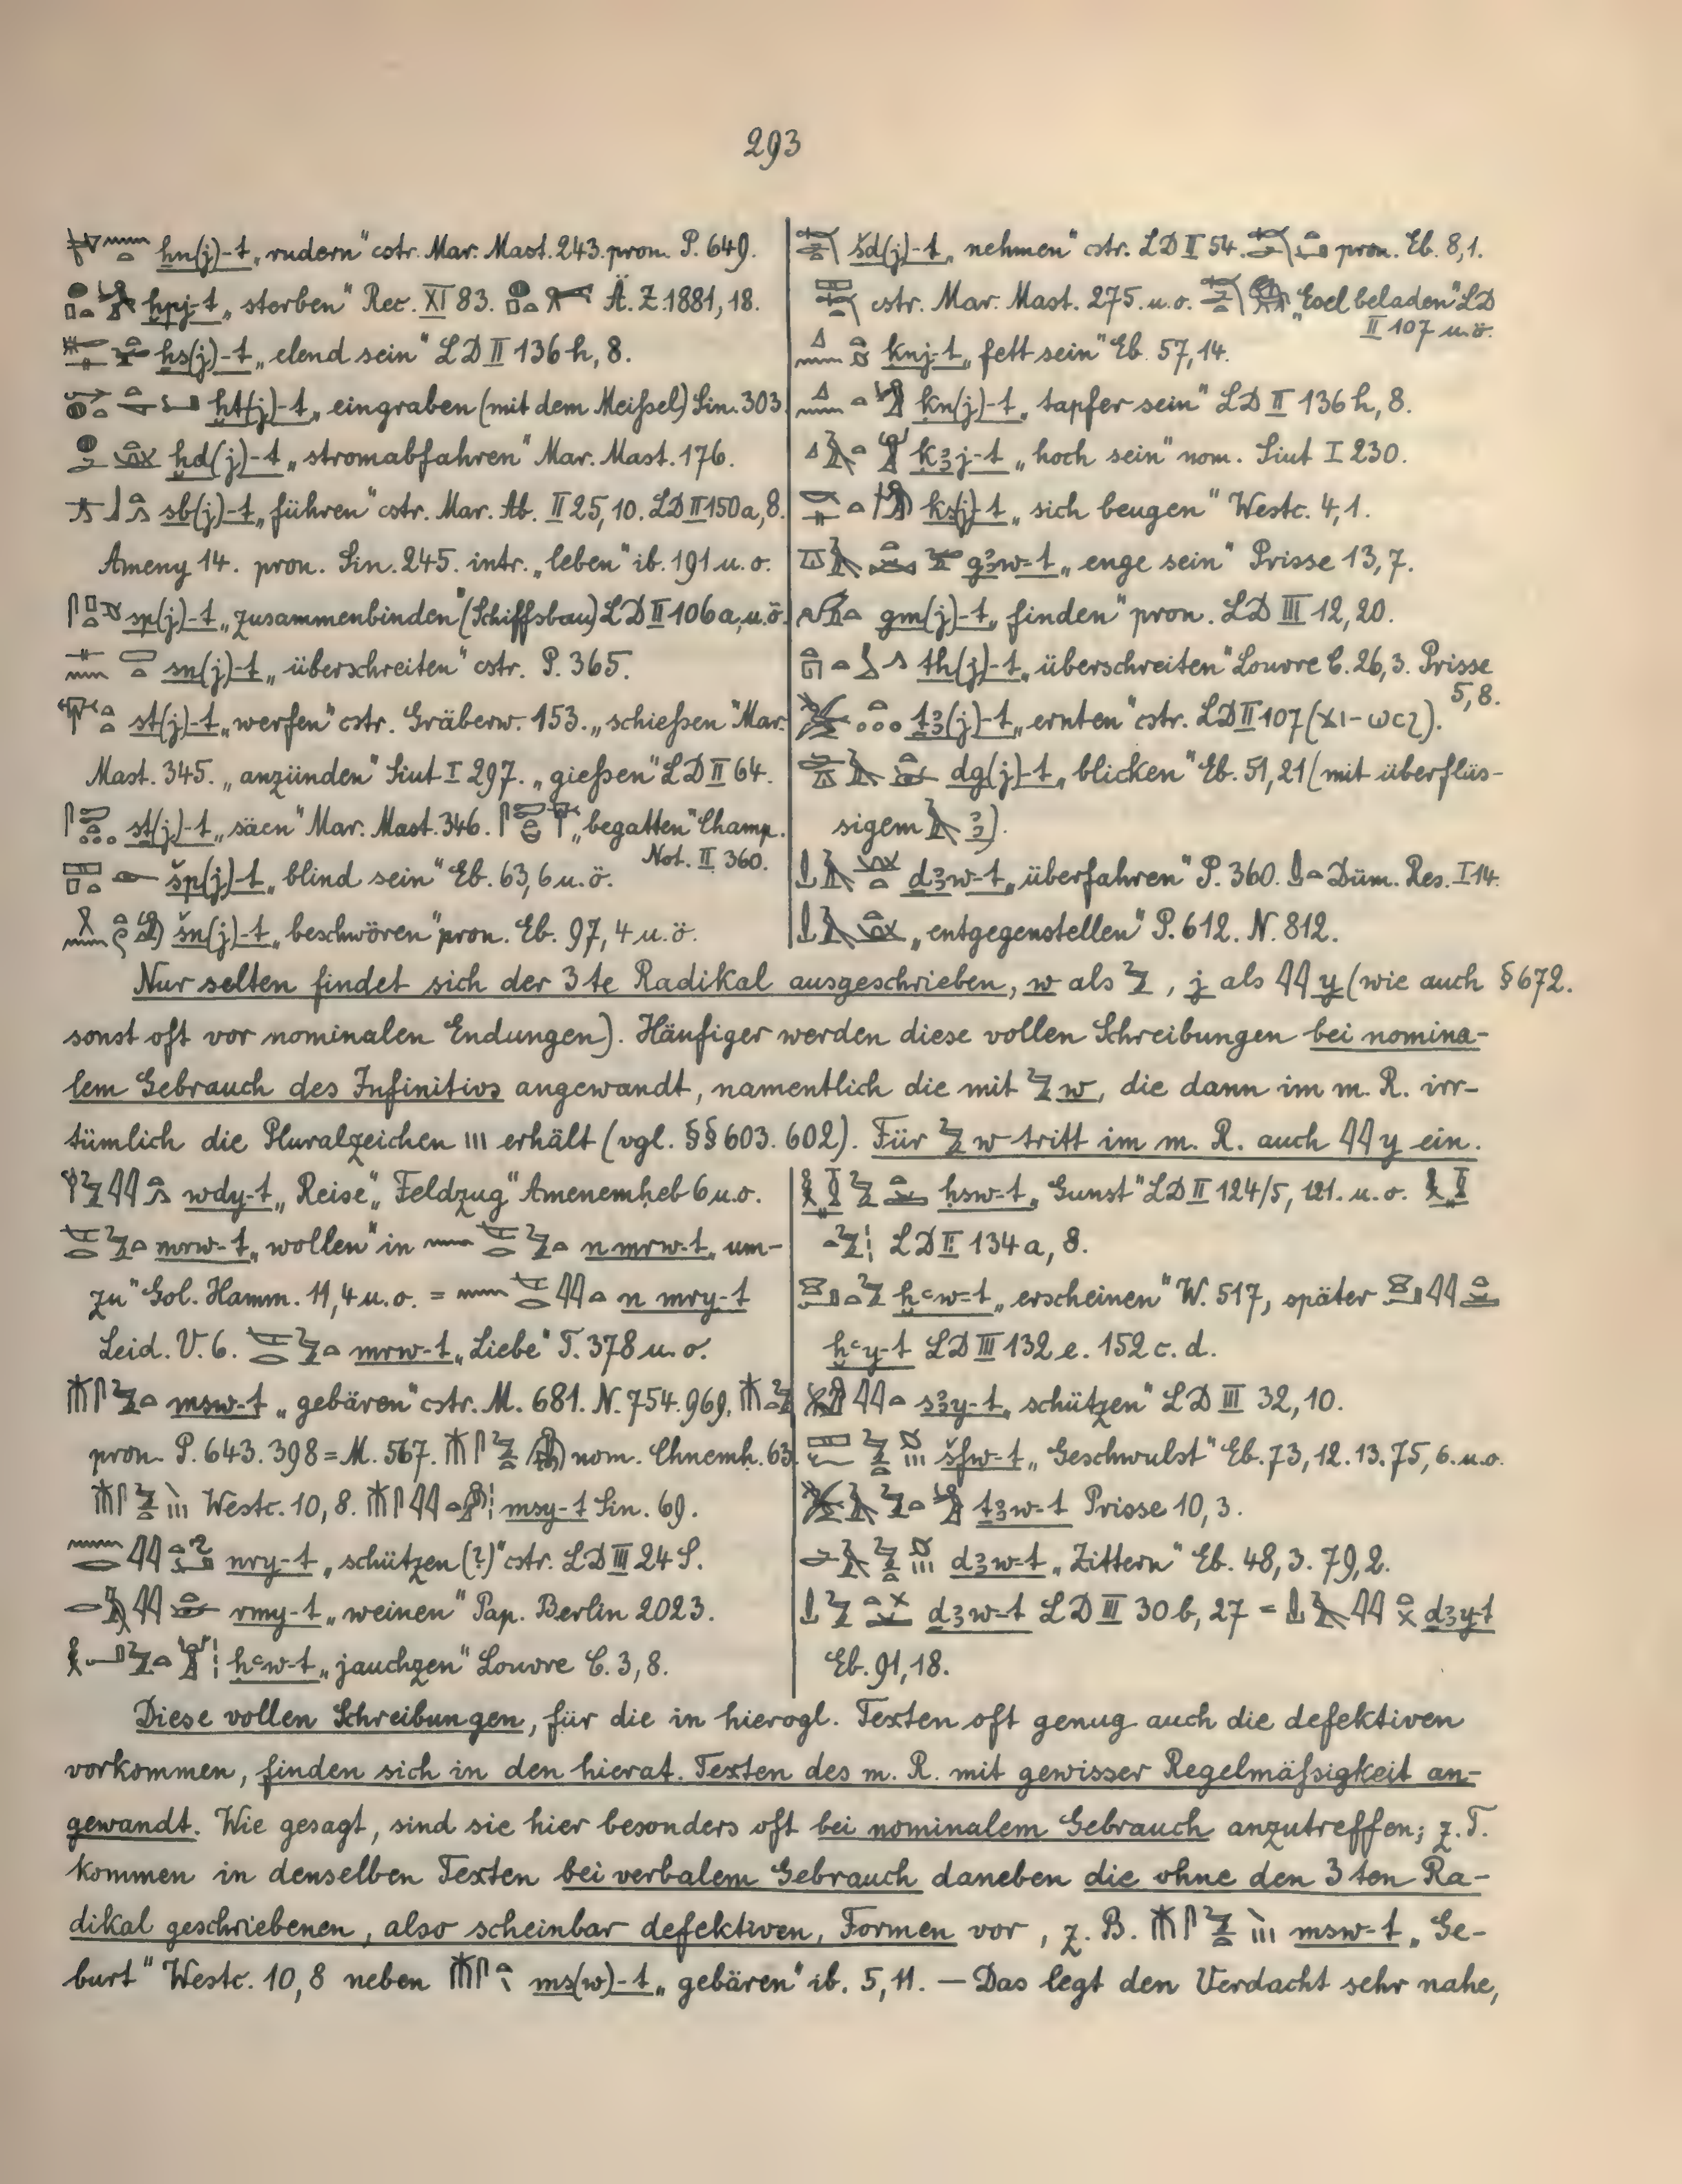 293
ḫn(j)-t „rudern" cstr. Mar. Mast. 243. pron. P. 649.
ḫpj-t „sterben" Rec. XI 83. Ä. Z. 1881, 18.
ḫs(j)-t „elend sein" LD II 136 h, 8.
ḫt(j)-t „eingraben (mit dem Meißel) Sin. 303.
ḫd(j)-t „stromabfahren" Mar. Mast. 176.
sb(j)-t „führen" cstr. Mar. Ab. II 25, 10. LD II 150 a, 8.
Ameny 14. pron. Sin. 245. intr. „leben" ib. 191 u. o.
sp(j)-t „zusammenbinden" (Schiffsbau) LD II 106 a, u. ö.
sn(j)-t „überschreiten" cstr. P. 365.
st(j)-t „werfen" cstr. Gräberw. 153. „schießen" Mar.
Mast. 345. „anzünden" Siut I 297. „gießen" LD II 64.
st(j)-t „säen" Mar. Mast. 346. „begatten" Champ.
Not. II 360.
šp(j)-t „blind sein" Eb. 63, 6 u. ö.
šn(j)-t „beschwören" pron. Eb. 97, 4 u. ö.
šd(j)-t „nehmen" cstr. LD II 54. pron. Eb. 8, 1.
cstr. Mar. Mast. 275. u. o. „Esel beladen" LD
II 107 u. ö.
ḳnj-t „fett sein" Eb. 57, 14.
ḳn(j)-t „tapfer sein" LD II 136 h, 8.
ḳꜣj-t „hoch sein" nom. Siut I 230.
ksj-t „sich beugen" Westc. 4, 1.
gꜣw-t „enge sein" Prisse 13, 7.
gm(j)-t „finden" pron. LD III 12, 20.
th(j)-t „überschreiten" Louvre C. 26, 3. Prisse
5, 8.
ṯꜣ(j)-t „ernten" cstr. LD II 107 (ϫⲓ-ⲱϲϩ).
dg(j)-t „blicken" Eb. 51, 21 (mit überflüs-
sigem ꜣ).
ḏꜣw-t „überfahren" P. 360. Düm. Res. I 14.
„entgegenstellen" P. 612. N. 812.
Nur selten findet sich der 3te Radikal ausgeschrieben, w als 𓅱, j als 𓇌 y (wie auch § 672.
sonst oft vor nominalen Endungen). Häufiger werden diese vollen Schreibungen bei nomina-
lem Gebrauch des Infinitivs angewandt, namentlich die mit 𓅱 w, die dann im m. R. irr-
tümlich die Pluralzeichen ııı erhält (vgl. §§ 603. 602). Für 𓅱 w tritt im m. R. auch 𓇌 y ein.
wdy-t „Reise", „Feldzug" Amenemheb 6 u. o.
mrw-t „wollen" in n mrw-t „um-
zu" Gol. Hamm. 11, 4 u. o. = n mry-t
Leid. V. 6. mrw-t „Liebe" T. 378 u. o.
msw-t „gebären" cstr. M. 681. N. 754. 969.
pron. P. 643. 398 = M. 567. nom. Chnemh. 63.
Westc. 10, 8. msy-t Sin. 69.
nry-t „schützen (?)" cstr. LD III 24 S.
rmy-t „weinen" Pap. Berlin 2023.
ḥꜥw-t „jauchzen" Louvre C. 3, 8.
ḥsw-t „Gunst" LD II 124/5, 121. u. o.
LD II 134 a, 8.
ḫꜥw-t „erscheinen" W. 517, später
ḫꜥy-t LD III 132 e. 152 c. d.
sꜣy-t „schützen" LD III 32, 10.
šfw-t „Geschwulst" Eb. 73, 12. 13. 75, 6. u. o.
ṯꜣw-t Prisse 10, 3.
dꜣw-t „Zittern" Eb. 48, 3. 79, 2.
ḏꜣw-t LD III 30 b, 27 = ḏꜣy-t
Eb. 91, 18.
Diese vollen Schreibungen, für die in hierogl. Texten oft genug auch die defektiven
vorkommen, finden sich in den hierat. Texten des m. R. mit gewisser Regelmäßigkeit an-
gewandt. Wie gesagt, sind sie hier besonders oft bei nominalem Gebrauch anzutreffen; z. T.
kommen in denselben Texten bei verbalem Gebrauch daneben die ohne den 3ten Ra-
dikal geschriebenen, also scheinbar defektiven, Formen vor, z. B. msw-t „Ge-
burt" Westc. 10, 8 neben ms(w)-t „gebären" ib. 5, 11. — Das legt den Verdacht sehr nahe,